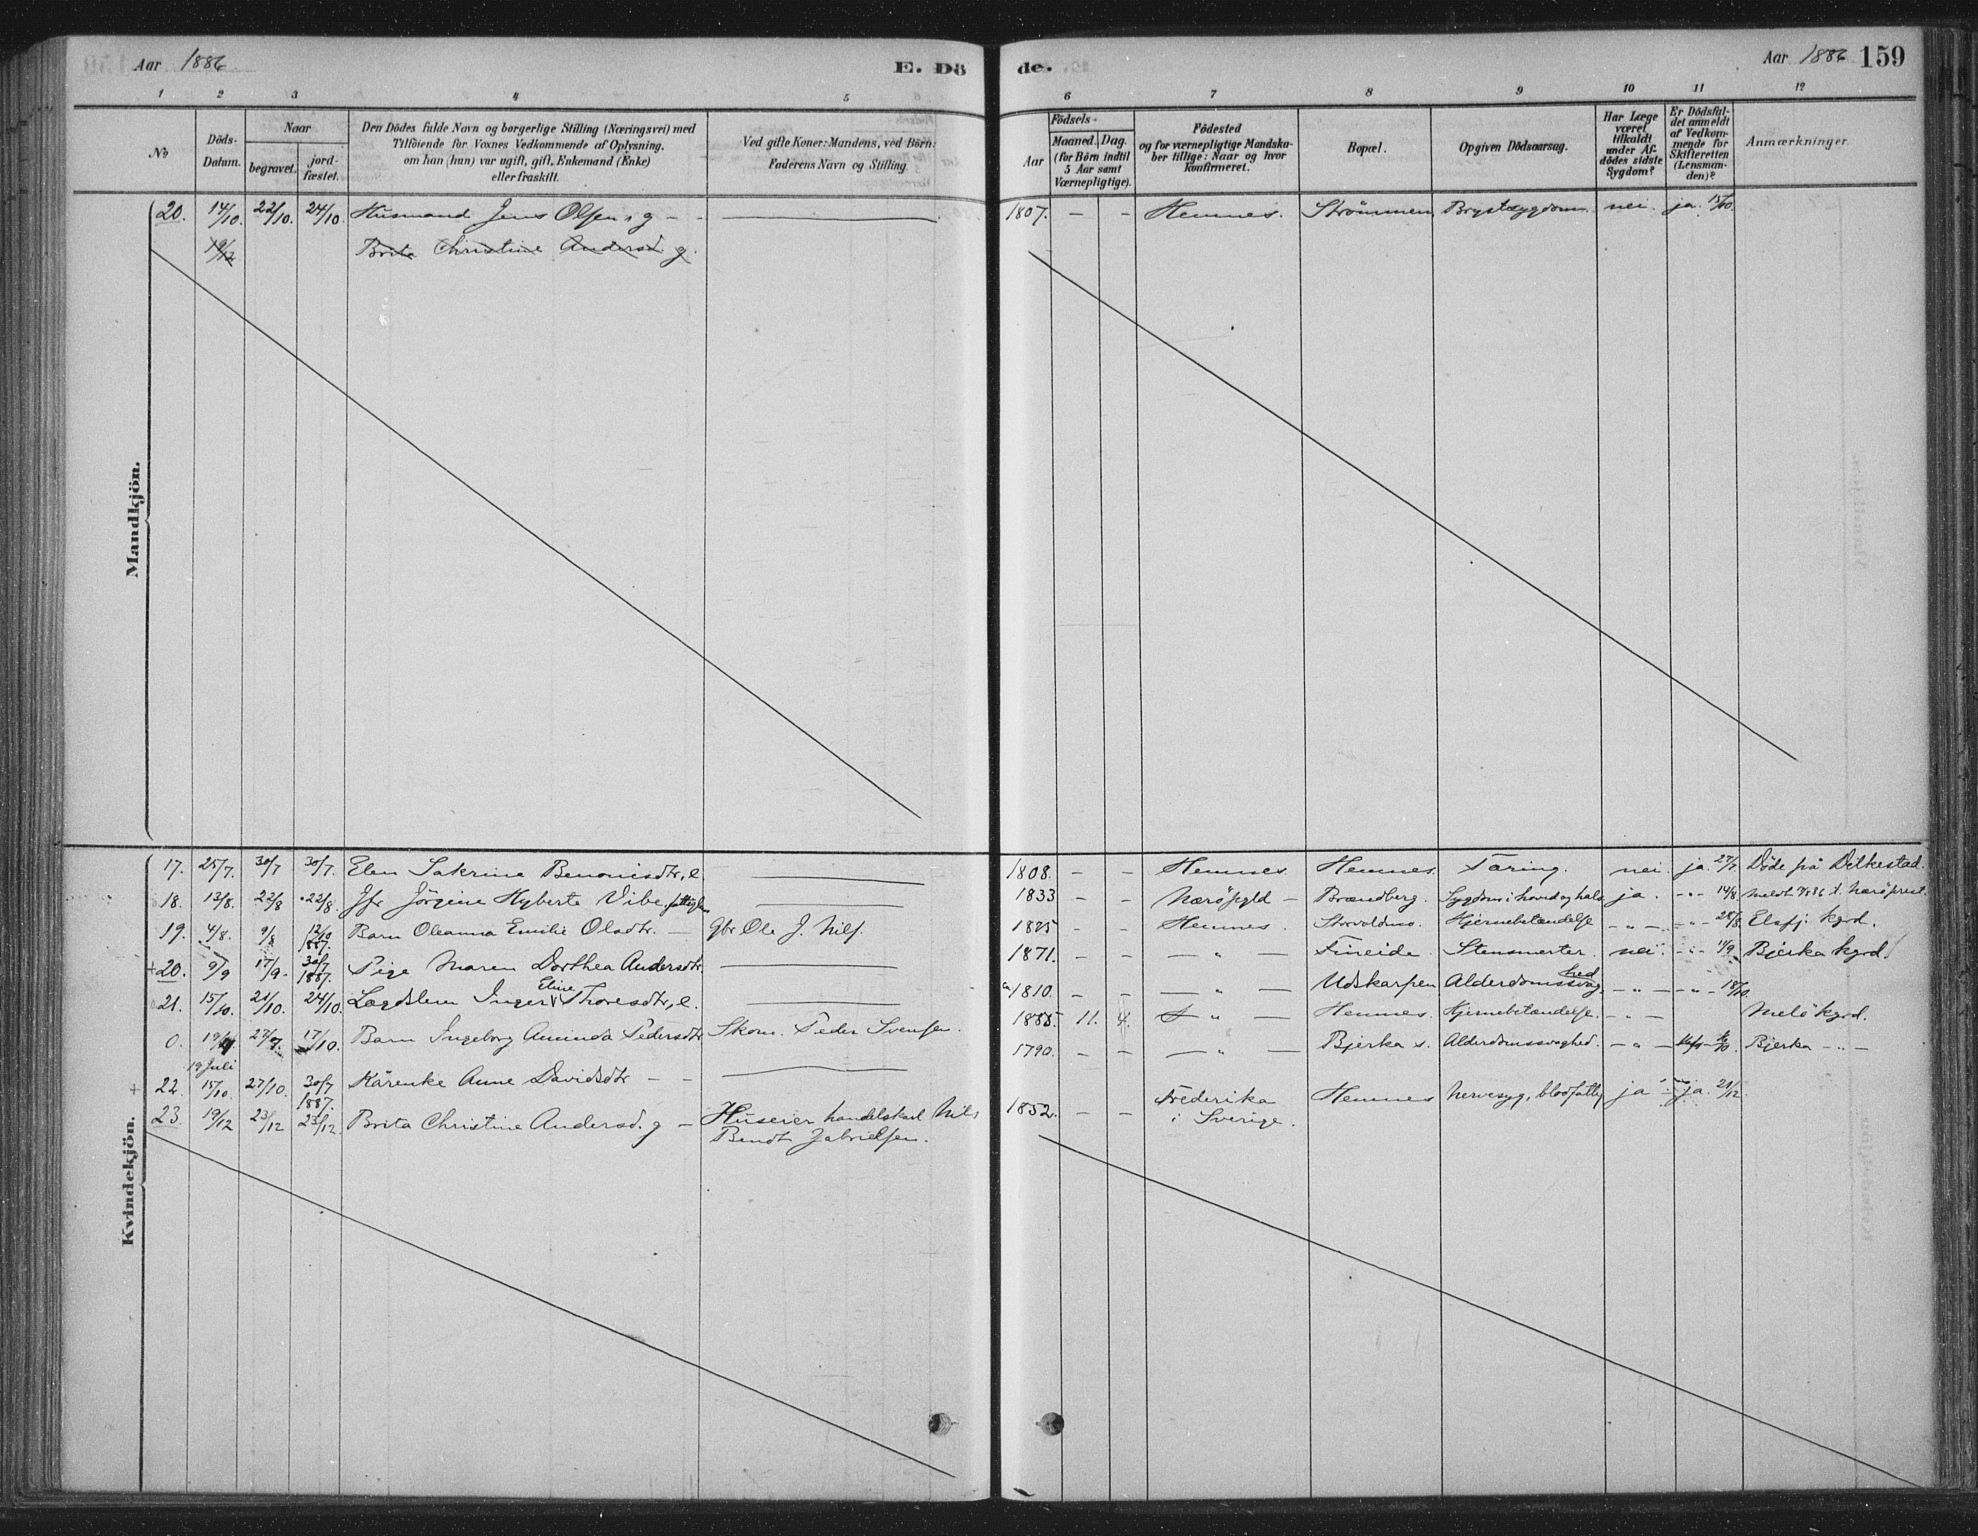 Aar 1886
E. Dö
de.
Aar 1886 159
1 2 3 4 5
6 7 8 9 10 11 12
No
Döds-
Datum.
Naar
begravet.
jord-
fæstet.
Den Dödes fulde Navn og borgerlige Stilling (Næringsvei) med
Tilföiende for Voxnes Vedkommende af Oplysning,
om han (hun) var ugift, gift, Enkemand (Enke)
eller fraskilt.
Ved gifte Koner: Mandens, ved Börn:
Faderens Navn og Stilling.
Födsels-
Aar
Maaned. Dag.
(for Börn indtil
5 Aar samt
Værnepligtige).
Födested
og for værnepligtige Mandska-
ber tillige: Naar og hvor
konfirmeret.
Bopæl.
Opgiven Dödsaarsag.
Har Læge
været
tilkaldt
under Af-
dödes sidste
Sygdom?
Er Dödsfal-
det anmeldt
af Vedkom-
mende for
Skifteretten
(Lensman-
den)?
Anmærkninger.
Mandkjön.
20. 14/10. 22/10. 24/10. Husmand Jens Olsen, g - - 1807. - - Hemnes. Strömmen Brystsygdom nei. ja. 15/10.
19/12 Brita Christine Andersd g.
Kvindekjön.
17. 25/7. 30/7 30/7. Elen Sakrine Benonisdtr, e. 1808. - - Hemnes. Hemnes. Tæring. nei. ja. 27/7. Döde på Dilkestad.
18. 13/8. 22/8 22/8. Jfr Jörgine Hyberte Vibe, 1833 - - Næröpgld - Brændberg. Sygdom i hoved og hals ja. -"- 14/8.
19. 4/8. 9/8 12/10 1887. Barn Oleanna Emilie Olsdtr. - Gbr Ole J. Nils. 1885 - - Hemnes. Hjernebetændelse -"- -"- 28/8. Elsfj. kgrd.
+20. 9/9 17/9. 30/7 1887. Pige Maren Dorthea Andersdtr. 1871. - - -"- Fineide. Stensmerter. nei. -"- 11/9. Bjerka kgrd.
21. 15/10. 21/10. 24/10. Lægdslem Inger Eline Thoresdtr, e. 1810. - - -"- Udskarpen Alderdomssvaghed -"- -"- 18/10.
0. 27/7. 17/10. Barn Ingeborg Aminda Pedersdtr Skom. Peder Svensen. 1885. 11. 4. -"- Hemnes. Hjernebetændelse. -"- Melö kgrd.
19 Juli
+ 22 15/10. 27/10. 30/7 1887. Kårenke Anne Davidsdtr - - 1790. -"- Bjerka s. Alderdomssvaghed. -"- Bjerka -"-
23. 19/12 23/12 23/12. Brita Christine Andersd. g - Huseier handelskarl Nils
Bendt Gabrielsen. 1852. - - Frederika
i Sverige. Hemnes nervesyg, blodfattig ja ja. 21/12.